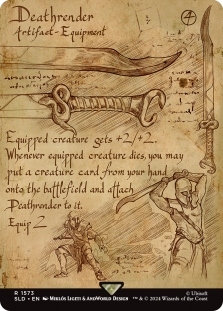 Deathrender
4
Artifact - Equipment
Equipped creature gets +2/+2.
Whenever equipped creature dies, you may
put a creature card from your hand
onto the battlefield and attach
Deathrender to it.
Equip 2
R 1573
SLD • EN Miklós Ligeti & AndWorld Design
™ & © 2024 Wizards of the Coast
© Ubisoft